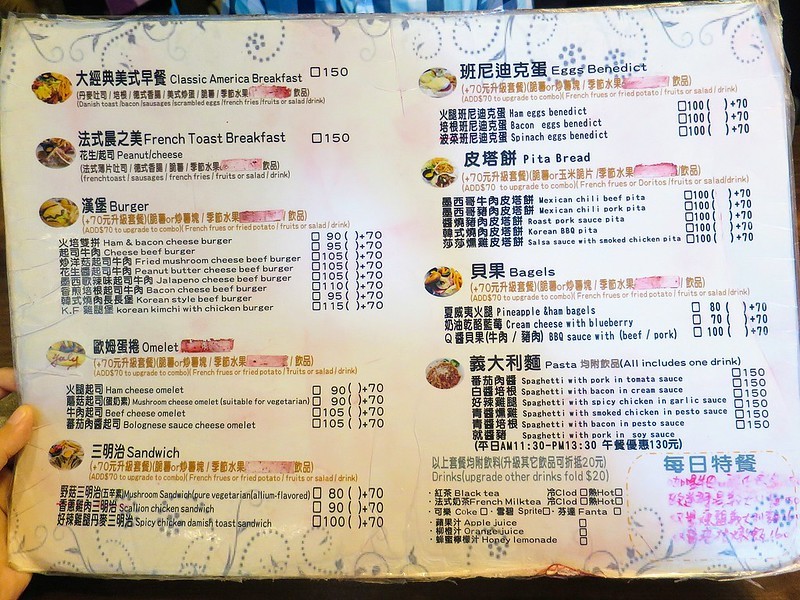 大經典美式早餐 Classic America Breakfast □150
(丹麥吐司/培根/德式香腸/美式炒蛋/脆薯/季節水果 飲品)
(Danish toast /bacon /sausages /scrambled eggs /french fries /fruits or salad /drink)
法式晨之美 French Toast Breakfast □150
花生/起司 Peanut/cheese
(法式薄片吐司/德式香腸/脆薯/季節水果 飲品)
(frenchtoast / sausages / french fries / fruits or salad / drink)
漢堡 Burger
(+70元升級套餐)(脆薯or炒薯塊/季節水果 飲品)
(ADD$70 to upgrade to combo)( French fries or fried potato / fruits or salad / drink)
火培雙拼 Ham & bacon cheese burger □ 90( )+70
起司牛肉 Cheese beef burger □ 95( )+70
炒洋菇起司牛肉 Fried mushroom cheese beef burger □105( )+70
花生醬起司牛肉 Peanut butter cheese beef burger □105( )+70
墨西哥辣味起司牛肉 Jalapeno cheese beef burger □105( )+70
香煎培根起司牛肉 Bacon cheese beef burger □110( )+70
韓式燒肉長長堡 Korean style beef burger □ 95( )+70
K.F 雞腿堡 korean kimchi with chicken burger □115( )+70
歐姆蛋捲 Omelet
(+70元升級套餐)(脆薯or炒薯塊/季節水果 飲品)
(ADD$70 to upgrade to combo)( French fries or fried potato / fruits or salad / drink)
火腿起司 Ham cheese omelet □ 90( )+70
蘑菇起司(蛋奶素) Mushroom cheese omelet (suitable for vegetarian) □ 90( )+70
牛肉起司 Beef cheese omelet □105( )+70
蕃茄肉醬起司 Bolognese sauce cheese omelet □105( )+70
三明治 Sandwich
(+70元升級套餐)(脆薯or炒薯塊/季節水果 飲品)
(ADD$70 to upgrade to combo)( French fries or fried potato / fruits or salad / drink)
野菇三明治(五辛素) Mushroom Sandwich(pure vegetarian(allium-flavored) □ 80 ( )+70
香蔥雞肉三明治 Scallion chicken sandwich □ 90( )+70
好辣雞腿丹麥三明治 Spicy chicken damish toast sandwich □100( )+70
班尼迪克蛋 Eggs Benedict
(+70元升級套餐)(脆薯or炒薯塊/季節水果 飲品)
(ADD$70 to upgrade to combo)( French frues or fried potato / fruits or salad / drink)
火腿班尼迪克蛋 Ham eggs benedict □100( )+70
培根班尼迪克蛋 Bacon eggs benedict □100( )+70
菠菜班尼迪克蛋 Spinach eggs benedict □100( )+70
皮塔餅 Pita Bread
(+70元升級套餐)(脆薯or玉米脆片/季節水果 /飲品)
(ADD$70 to upgrade to combo)( French fues or Doritos /fruits or salad / drink)
墨西哥牛肉皮塔餅 Mexican chili beef pita □100( )+70
墨西哥豬肉皮塔餅 Mexican chili pork pita □100( )+70
醬燒豬肉皮塔餅 Roast pork sauce pita □100( )+70
韓式燒肉皮塔餅 Korean BBQ pita □100( )+70
莎莎燻雞皮塔餅 Salsa sauce with smoked chicken pita □100( )+70
貝果 Bagels
(+70元升級套餐)(脆薯or炒薯塊/季節水果 /飲品)
(ADD$70 to upgrade to combo)( French frues or fried potato / fruits or salad / drink)
夏威夷火腿 Pineapple &ham bagels □ 80 ( )+70
奶油乾酪藍莓 Cream cheese with blueberry □ 70 ( )+70
Q 醬貝果(牛肉/豬肉) BBQ sauce with (beef / pork) □ 100( )+70
義大利麵 Pasta 均附飲品(All includes one drink)
蕃茄肉醬 Spaghetti with pork in tomato sauce □150
白醬培根 Spaghetti with bacon in cream sauce □150
好辣雞腿 Spaghetti with spicy chicken in garlic sauce □150
青醬燻雞 Spaghetti with smoked chicken in pesto sauce □150
青醬培根 Spaghetti with bacon in pesto sauce □150
就醬豬 Spaghetti with pork in soy sauce □150
(平日AM11:30-PM13:30 午餐優惠130元)
以上套餐均附飲料(升級其它飲品可折抵20元)
Drinks(upgrade other drinks fold $20)
·紅茶 Black tea 冷Clod□熱Hot□
法式奶茶French Milktea 冷Clod□熱Hot□
可樂 Coke□·雪碧 Sprite□·芬達 Fanta □
·蘋果汁 Apple juice □
·柳橙汁 Orange juice □
·蜂蜜檸檬汁 Honey lemonade □
每日特餐